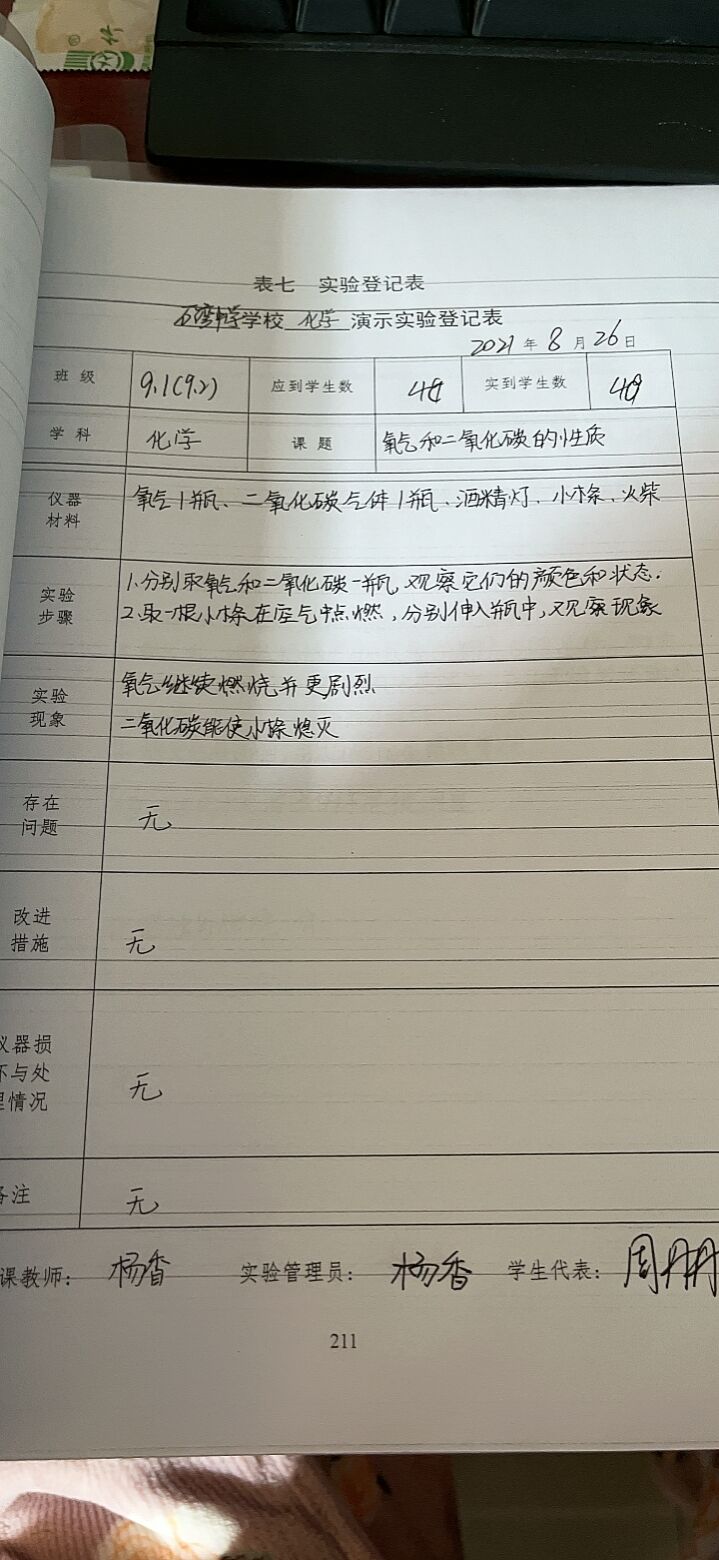 表七 实验登记表
学校 化学 演示实验登记表
2021 年 8 月 26 日
班 级 9.1(9.2) 应到学生数 实到学生数
学 科 化学 课 题 氧气和二氧化碳的性质
仪器
材料
氧气1瓶、二氧化碳气体1瓶、酒精灯、小木条、火柴
实验
步骤
1.分别取氧气和二氧化碳一瓶,观察它们的颜色和状态.
2.取一根小木条在空气中点燃,分别伸入瓶中,观察现象
实验
现象
氧气继续燃烧并更剧烈
二氧化碳能使小木条熄灭
存在
问题
无
改进
措施
无
仪器损
坏与处
理情况
无
备注
无
课教师: 杨香 实验管理员: 杨香 学生代表: 周丹丹
211